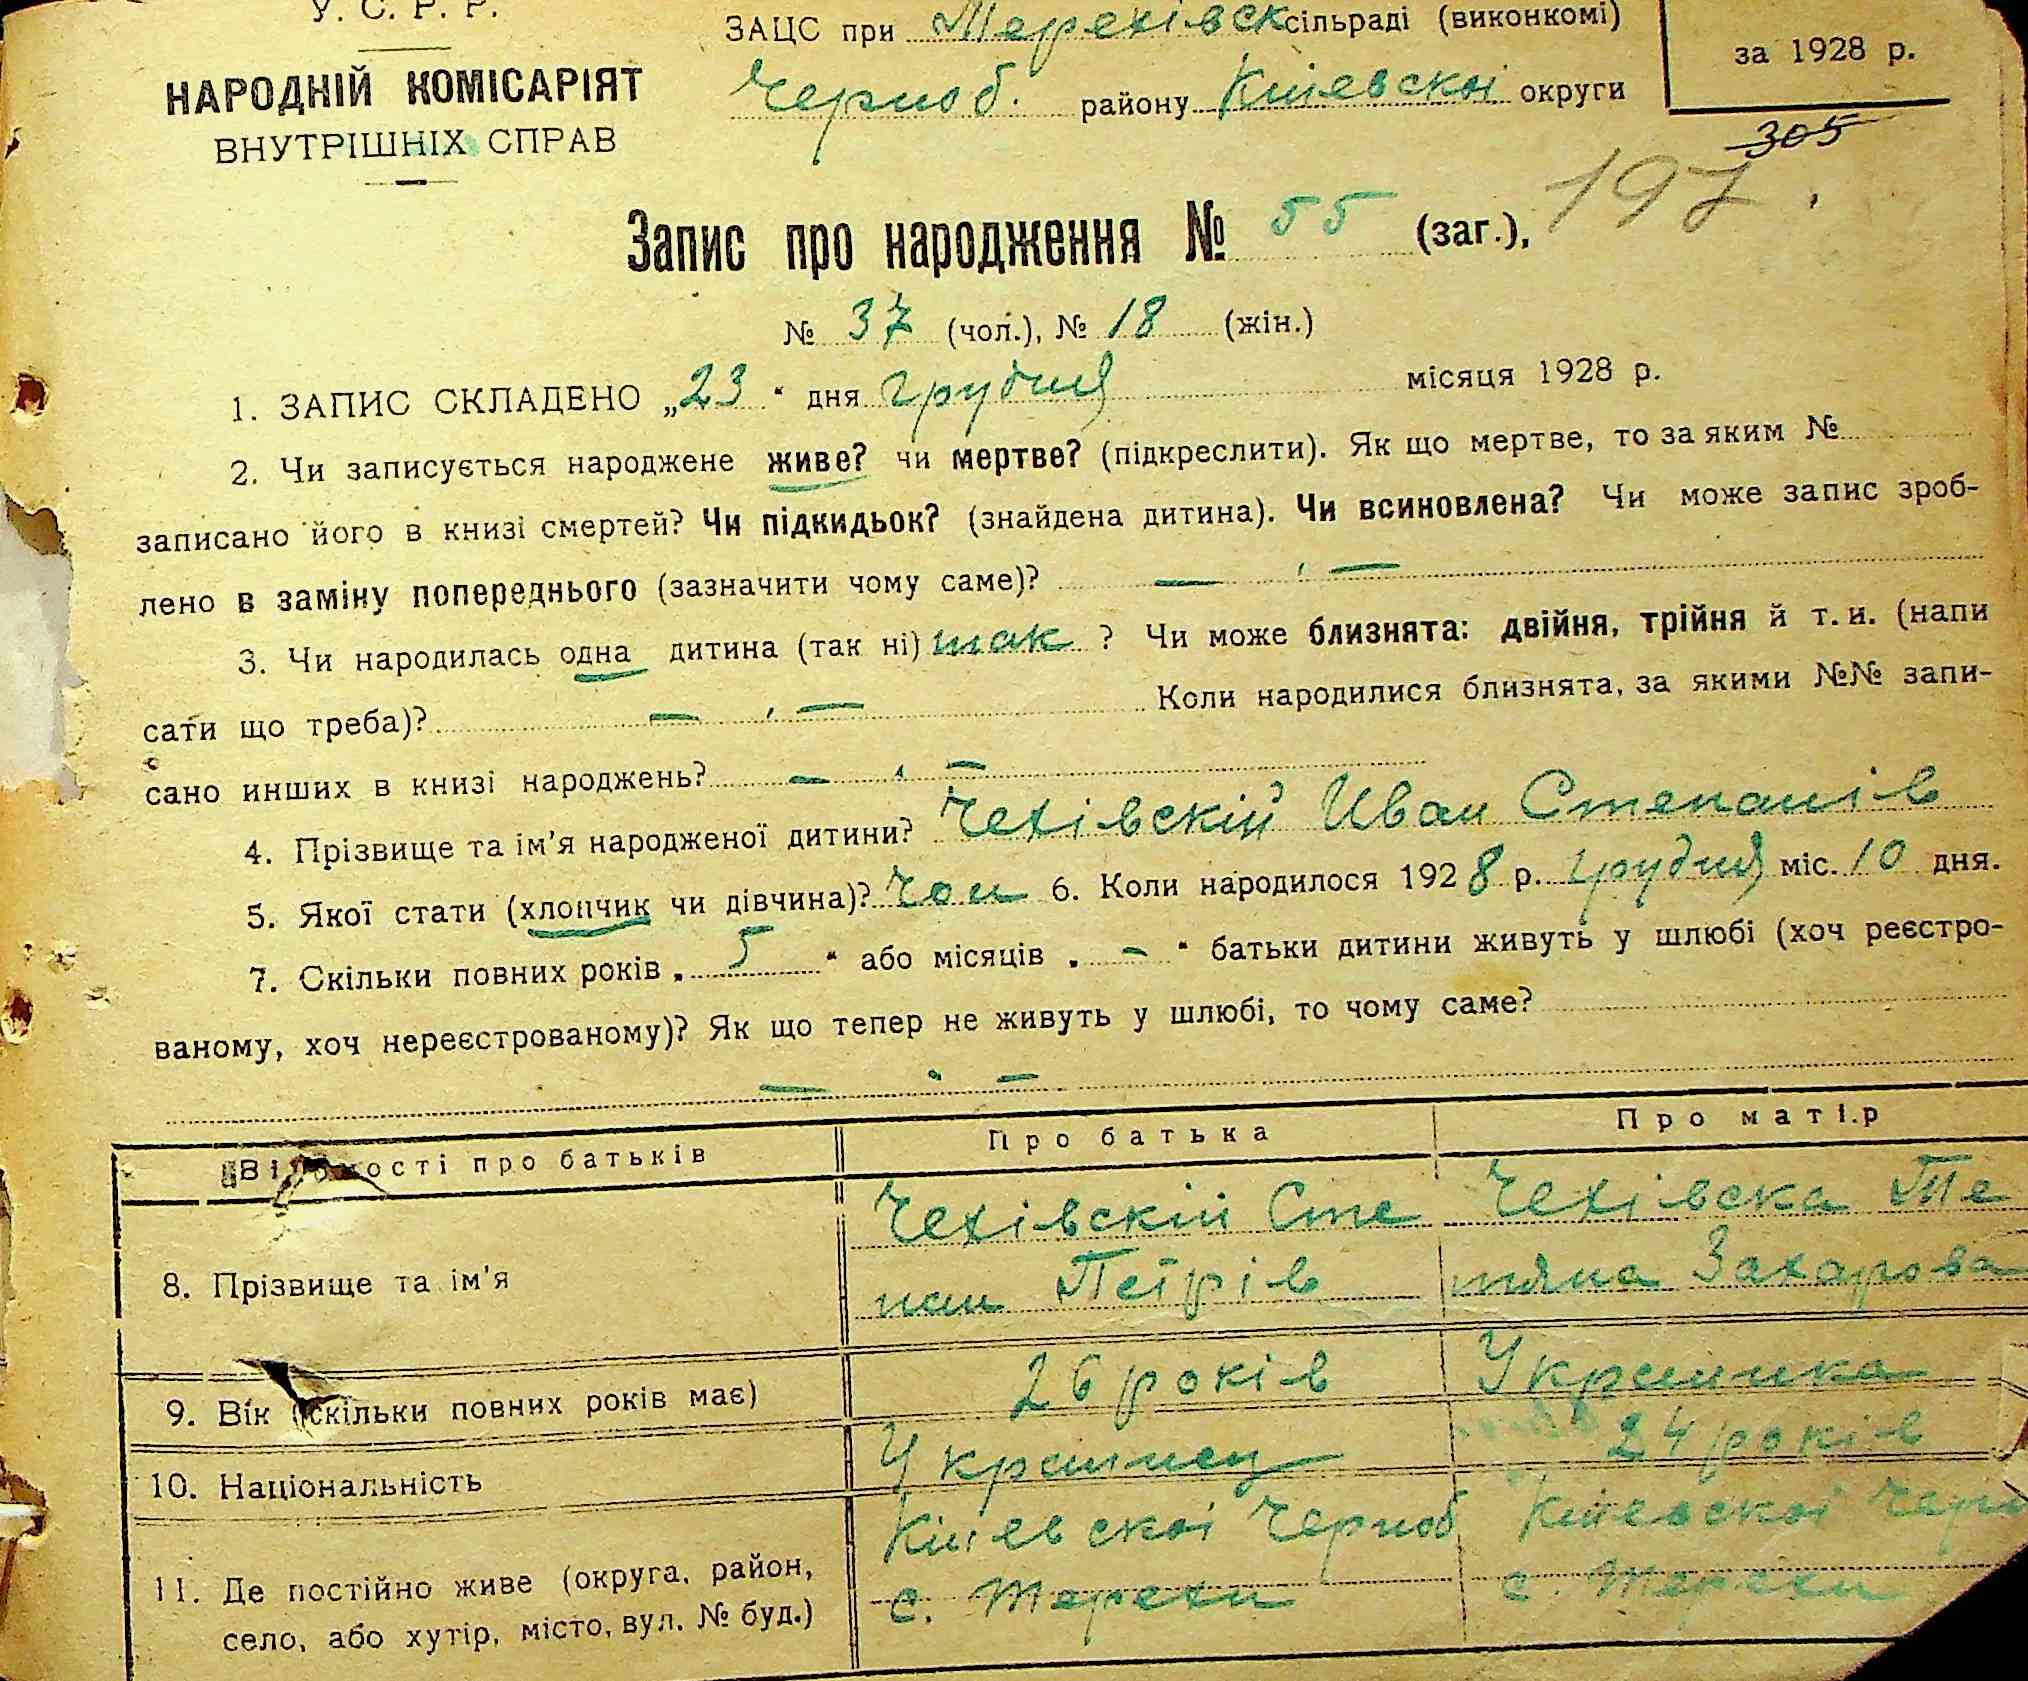 У. С. Р. Р.
НАРОДНІЙ КОМІСАРІЯТ
ВНУТРІШНІХ СПРАВ
ЗАЦС при Терехівск сільраді (виконкомі)
Черноб. району Київскої округи
за 1928 р.
305
197
Запис про народження № 55 (заг.),
№ 37 (чол.), № 18 (жін.)
1. ЗАПИС СКЛАДЕНО „23“ дня грудня місяця 1928 р.
2. Чи записується народжене живе? чи мертве? (підкреслити). Як що мертве, то за яким №
записано його в книзі смертей? Чи підкидьок? (знайдена дитина). Чи всиновлена? Чи може запис зроб-
лено в заміну попереднього (зазначити чому саме)? — , —
3. Чи народилась одна дитина (так ні) так ? Чи може близнята: двійня, трійня й т. и. (напи
сати що треба)? — , — Коли народилися близнята, за якими №№ запи-
сано инших в книзі народжень? — , —
4. Прізвище та ім'я народженої дитини? Чехівскій Иван Степанів
5. Якої стати (хлопчик чи дівчина)? Чол 6. Коли народилося 1928 р. грудня міс. 10 дня.
7. Скільки повних років „ 5 “ або місяців „ — “ батьки дитини живуть у шлюбі (хоч реєстро-
ваному, хоч нереєстрованому)? Як що тепер не живуть у шлюбі, то чому саме?
— , —
Відомості про батьків Про батька Про матір
8. Прізвище та ім'я Чехівскій Сте Чехівска Те
пан Петрів тяна Захарова
9. Вік (скільки повних років має) 26 років Украинка
10. Національність Украинец 24 років
11. Де постійно живе (округа, район, Київскої Черноб Київскої Черн
село, або хутір, місто, вул. № буд.) с. Терехи с. Терехи